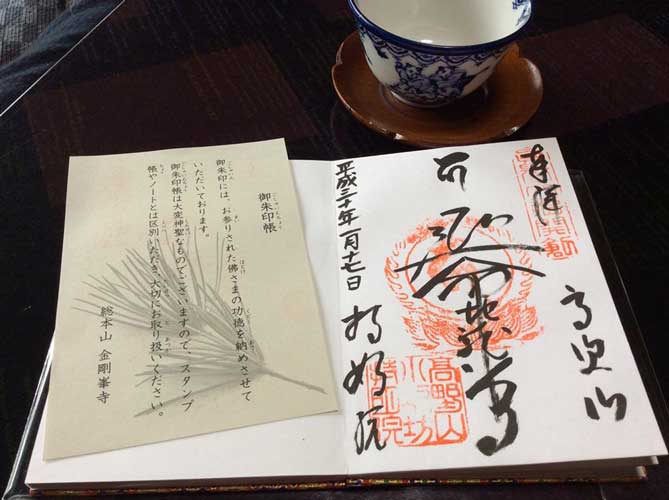 奉拝
高野山
平成三十年一月十七日
持明院
高野山
御朱印帳
御朱印には、お参りされた佛さまの功徳を納めさせて
いただいております。
御朱印帳は大変神聖なものでございますので、スタンプ
帳やノートとは区別いただき、大切にお取り扱いください。
総本山 金剛峯寺